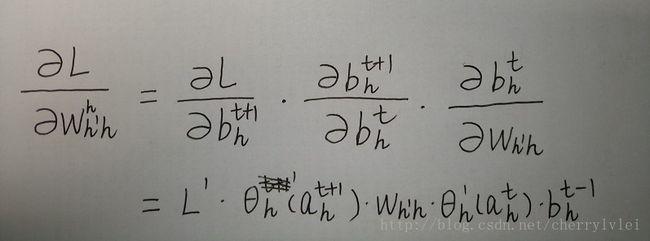 ∂L/∂w_{h'h}^{h} = ∂L/∂b_h^{t+1} · ∂b_h^{t+1}/∂b_h^t · ∂b_h^t/∂w_{h'h}
= L' · θ_h'(a_h^{t+1}) · w_{h'h} · θ_h'(a_h^t) · b_h^{t-1}
http://blog.csdn.net/cherrylvlei